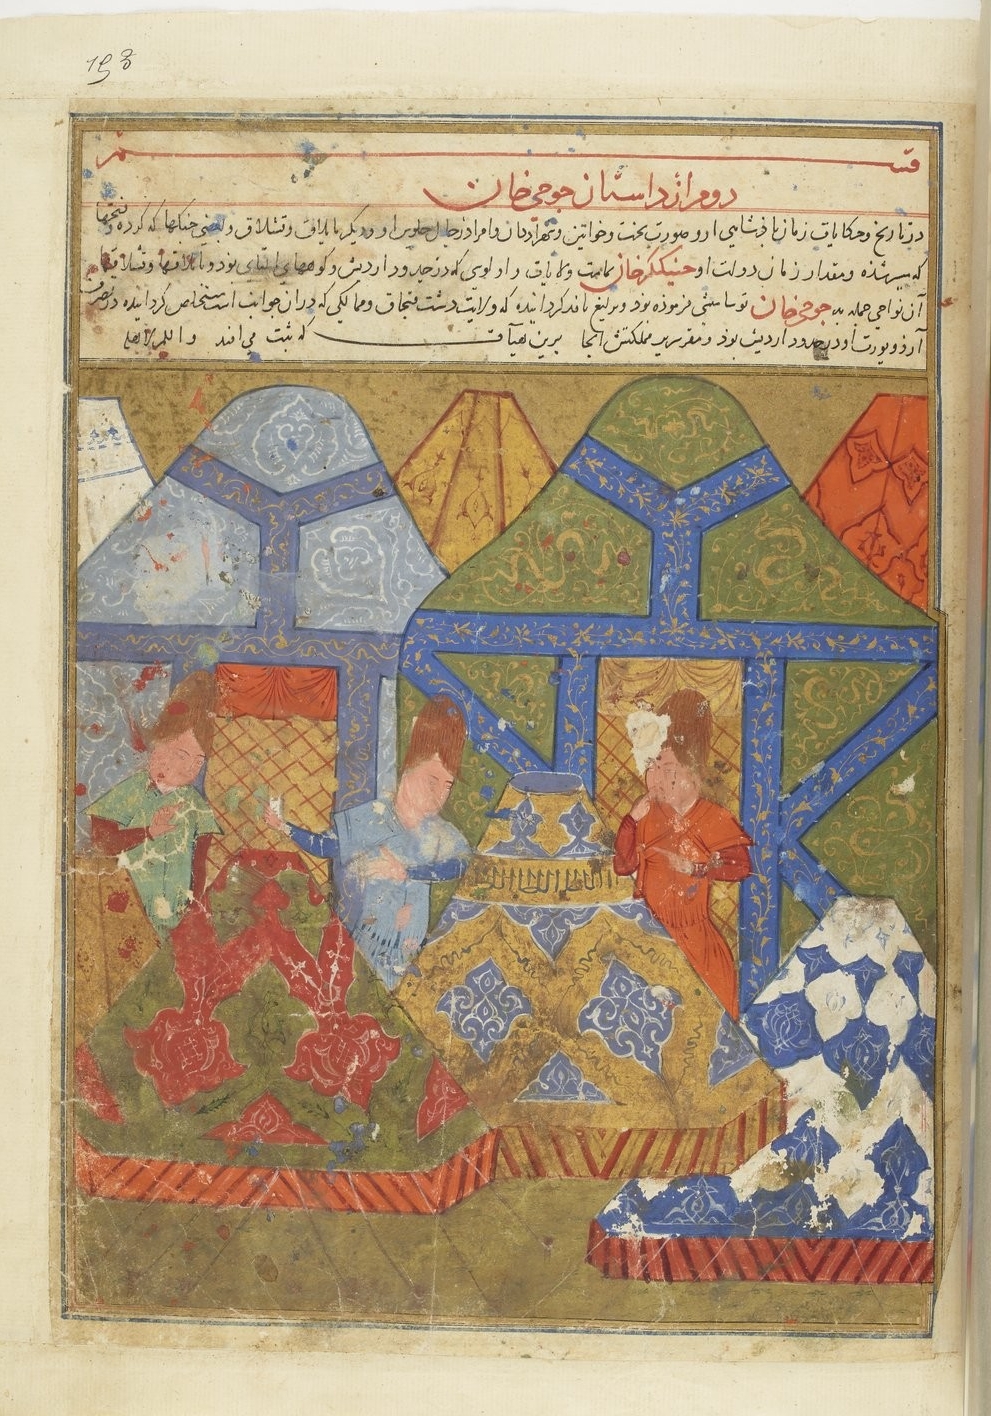 ۱۵۳
قسم
دوم از داستان جوجی خان
در تاریخ و حکایات زمان پادشاهی او و صورت تخت و خواتین و شهزادگان و امرا در حال جلوس او و دیگر ییلاق و قشلاق و بعضی جنگها که کرده و فتحها
که میسر شده و مقدار زمان دولت او جینککز خان تمامت ولایات و اولوس که در حدود اردیش و کوههای التای بود و ییلاقها و قشلاقهای
آن نواحی جمله به جوجی خان توسامیشی فرموده بود و یرلیغ نافذ گردانیده که ولایت دشت قبچاق و ممالکی که در آن جوانب است استخلاص گردانیده در تصرف
آرد و یورت او در حدود اردیش بود و مقر سریر مملکتش آنجا برین هیأت که ثبت می‌افتد و السلام